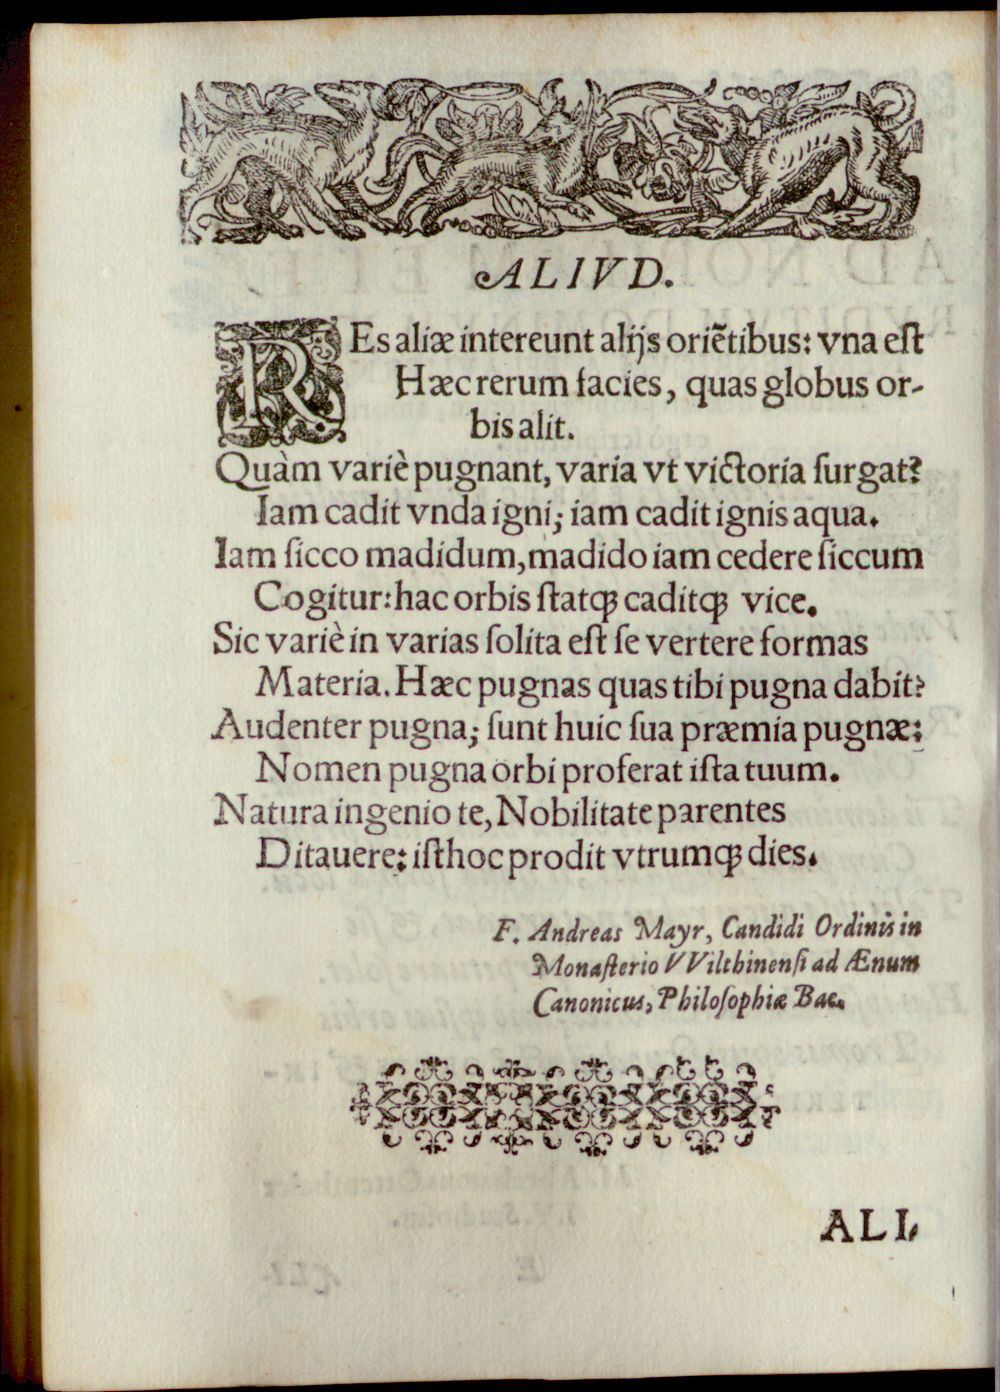 ALIVD.
REs aliæ intereunt alijs oriẽtibus: vna est
Hæc rerum facies, quas globus or-
bis alit.
Quàm variè pugnant, varia vt victoria surgat?
Iam cadit vnda igni; iam cadit ignis aqua.
Iam sicco madidum, madido iam cedere siccum
Cogitur: hac orbis statq́; caditq́; vice.
Sic variè in varias solita est se vertere formas
Materia. Hæc pugnas quas tibi pugna dabit?
Audenter pugna; sunt huic sua præmia pugnæ:
Nomen pugna orbi proferat ista tuum.
Natura ingenio te, Nobilitate parentes
Ditauere: isthoc prodit vtrumq́; dies.
F. Andreas Mayr, Candidi Ordinis in
Monasterio VVilthinensi ad Ænum
Canonicus, Philosophiæ Bac.
ALI-